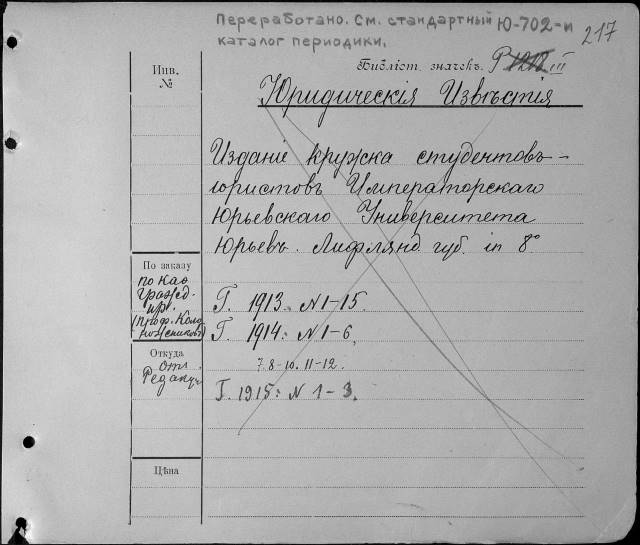 Переработано. См. стандартный Ю-702-и
каталог периодики.
217
Библіот. значекъ. Р 1212 III
Инв.
№
Юридическія Извѣстія
Изданіе кружка студентовъ-
юристовъ Императорскаго
Юрьевскаго Университета
Юрьевъ. Лифлянд губ. in 8°
По заказу
по каѳ
гражд.
пр.
(проф.
Г. 1913. N 1-15.
Г. 1914: N 1-6.
7.8-10. 11-12.
Г. 1915: N 1-3.
Откуда
отъ
Редакц
Цѣна